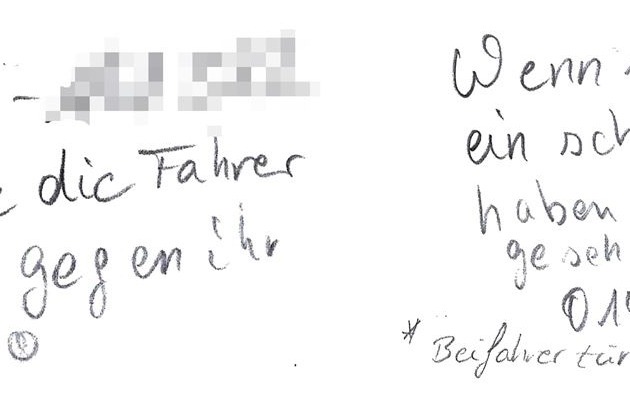 die Fahrer
gegen ihr
Wenn
ein sch
haben
geseh
01
* Beifahrertür